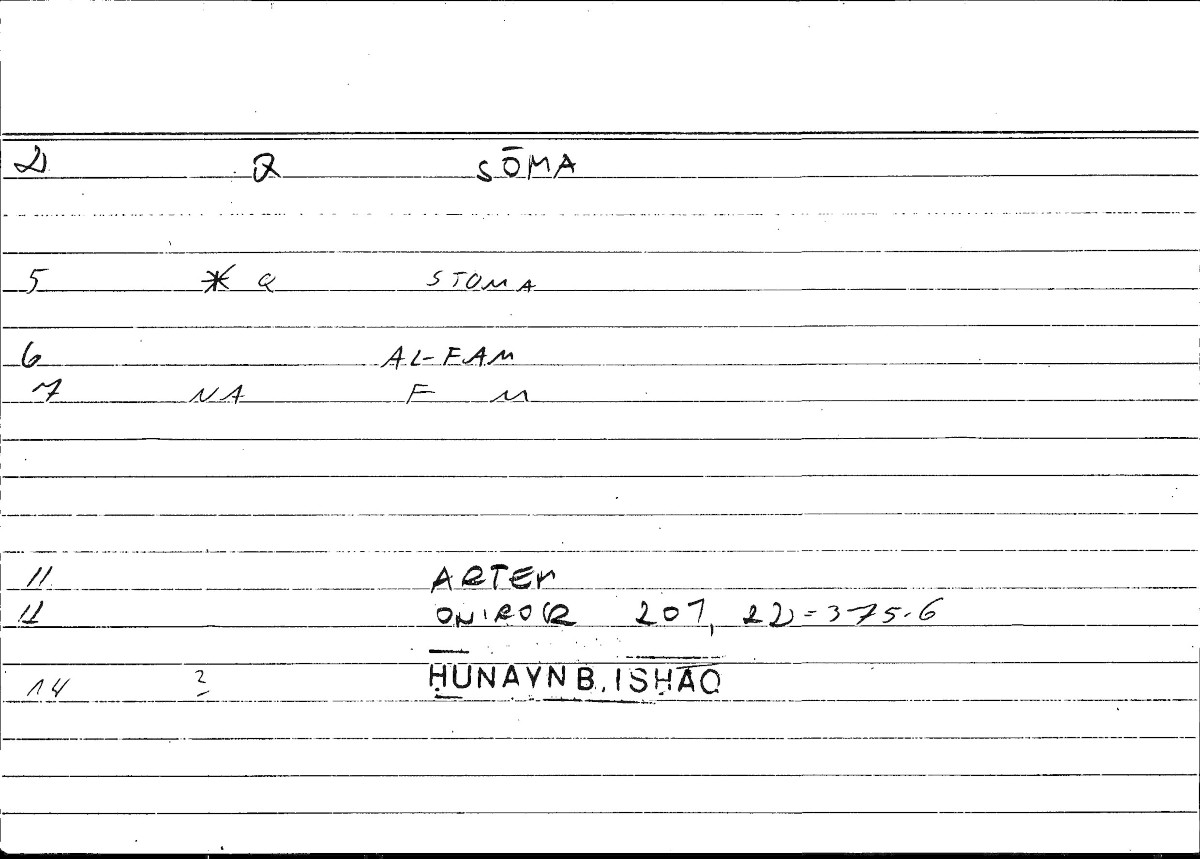 2 Q SŌMA
5 * Q STOMA
6 AL-FAM
7 NA F M
11 ARTEM
12 ONIROCR 207, 22 = 375.6
14 2 ḤUNAYN B. ISḤĀQ